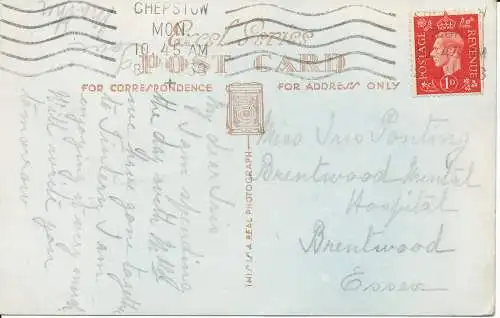 CHEPSTOW
MON.
10.45 AM
POST CARD
FOR CORRESPONDENCE
FOR ADDRESS ONLY
POSTAGE
REVENUE
1D
THIS IS A REAL PHOTOGRAPH
My dear Iris
I am spending
the day with
we have gone
to Tintern I am
enjoying it very much
Will write you
tomorrow
Miss Iris Ponting
Brentwood Mental
Hospital
Brentwood
Essex